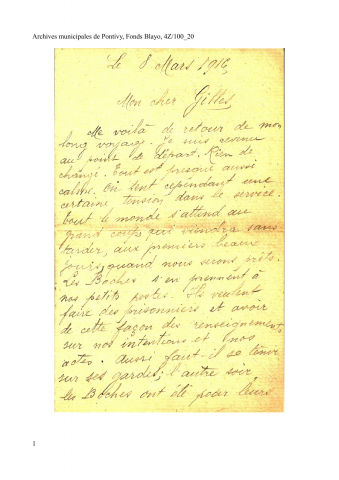 Archives municipales de Pontivy, Fonds Blayo, 4Z/100_20
Le 8 Mars 1916
Mon cher Gilles,
Me voilà de retour de mon
long voyage. Je suis revenu
au point de départ. Rien de
changé. Tout est presque aussi
calme. On sent cependant une
certaine tension dans le service.
Tout le monde s'attend au
grand coup qui viendra sans
tarder, aux premiers beaux
jours, quand nous serons prêts.
Les Boches s'en prennent à
nos petits postes. Ils veulent
faire des prisonniers et avoir
de cette façon des renseignements
sur nos intentions et nos
actes. Aussi faut-il se tenir
sur ses gardes; l'autre soir
les Boches ont été pour leurs
1